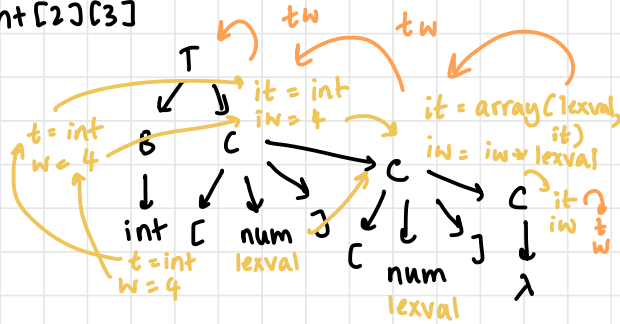 nt[2][3]
tw
tw
T
it = int
iw = 4
it = array(lexval,
it)
iw = iw * lexval
t = int
w = 4
B
C
C
C
it
iw
t
w
int
[
num
]
lexval
[
num
]
lexval
λ
t = int
w = 4